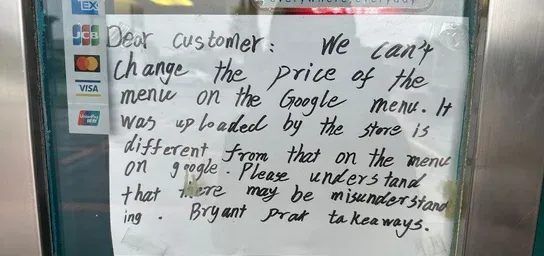 everywhere, everyday
EX
JCB
VISA
UnionPay
Dear customer: We can't
change the price of the
menu on the Google menu. It
was uploaded by the store is
different from that on the menu
on google. Please understand
that there may be misunderstand
ing. Bryant prat takeaways.